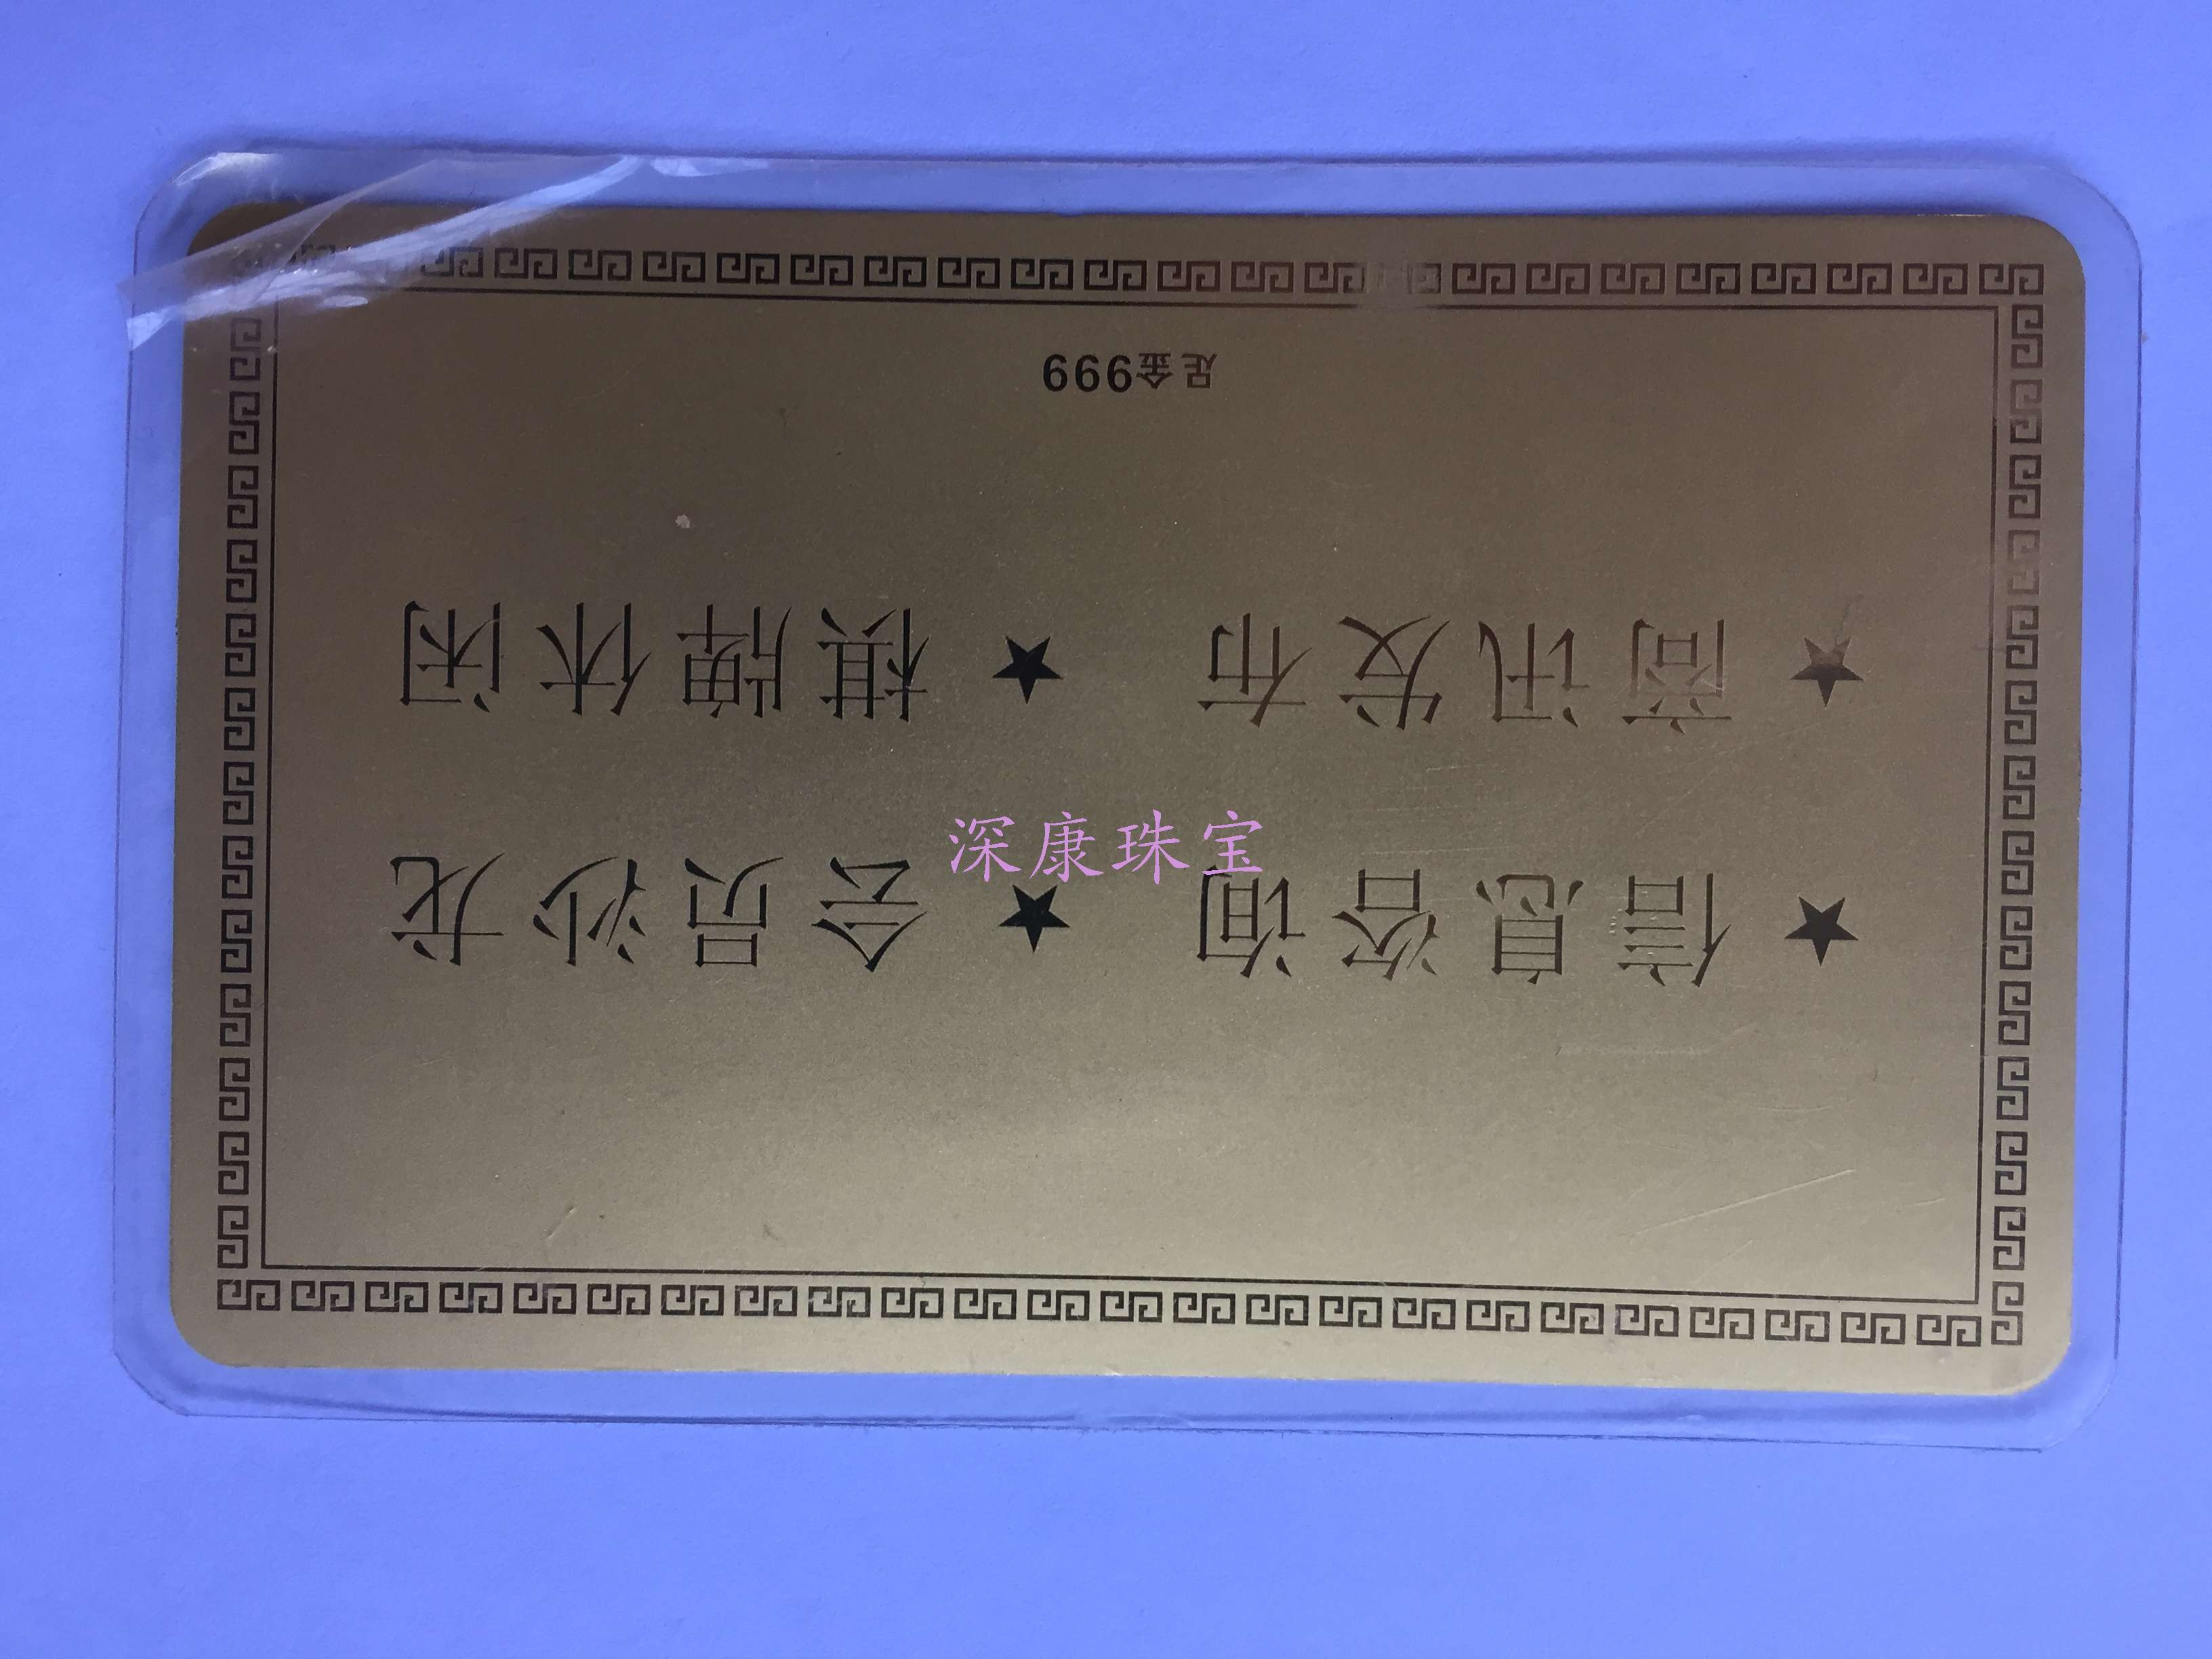 ★信息咨询 ★会员沙龙
★商讯发布 ★棋牌休闲
足金999
深康珠宝